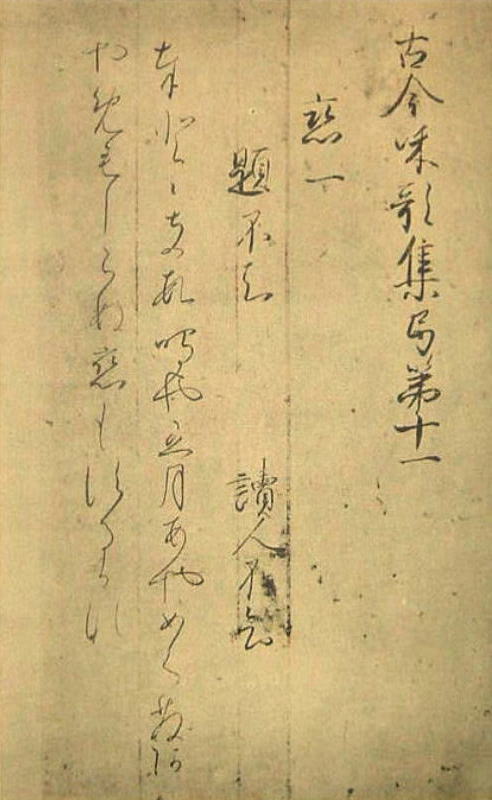 古今和歌集巻第十一
戀一
題不知　讀人不知
ほとゝきす鳴や五月あやめくさあ
やめもしらぬ戀もするかな